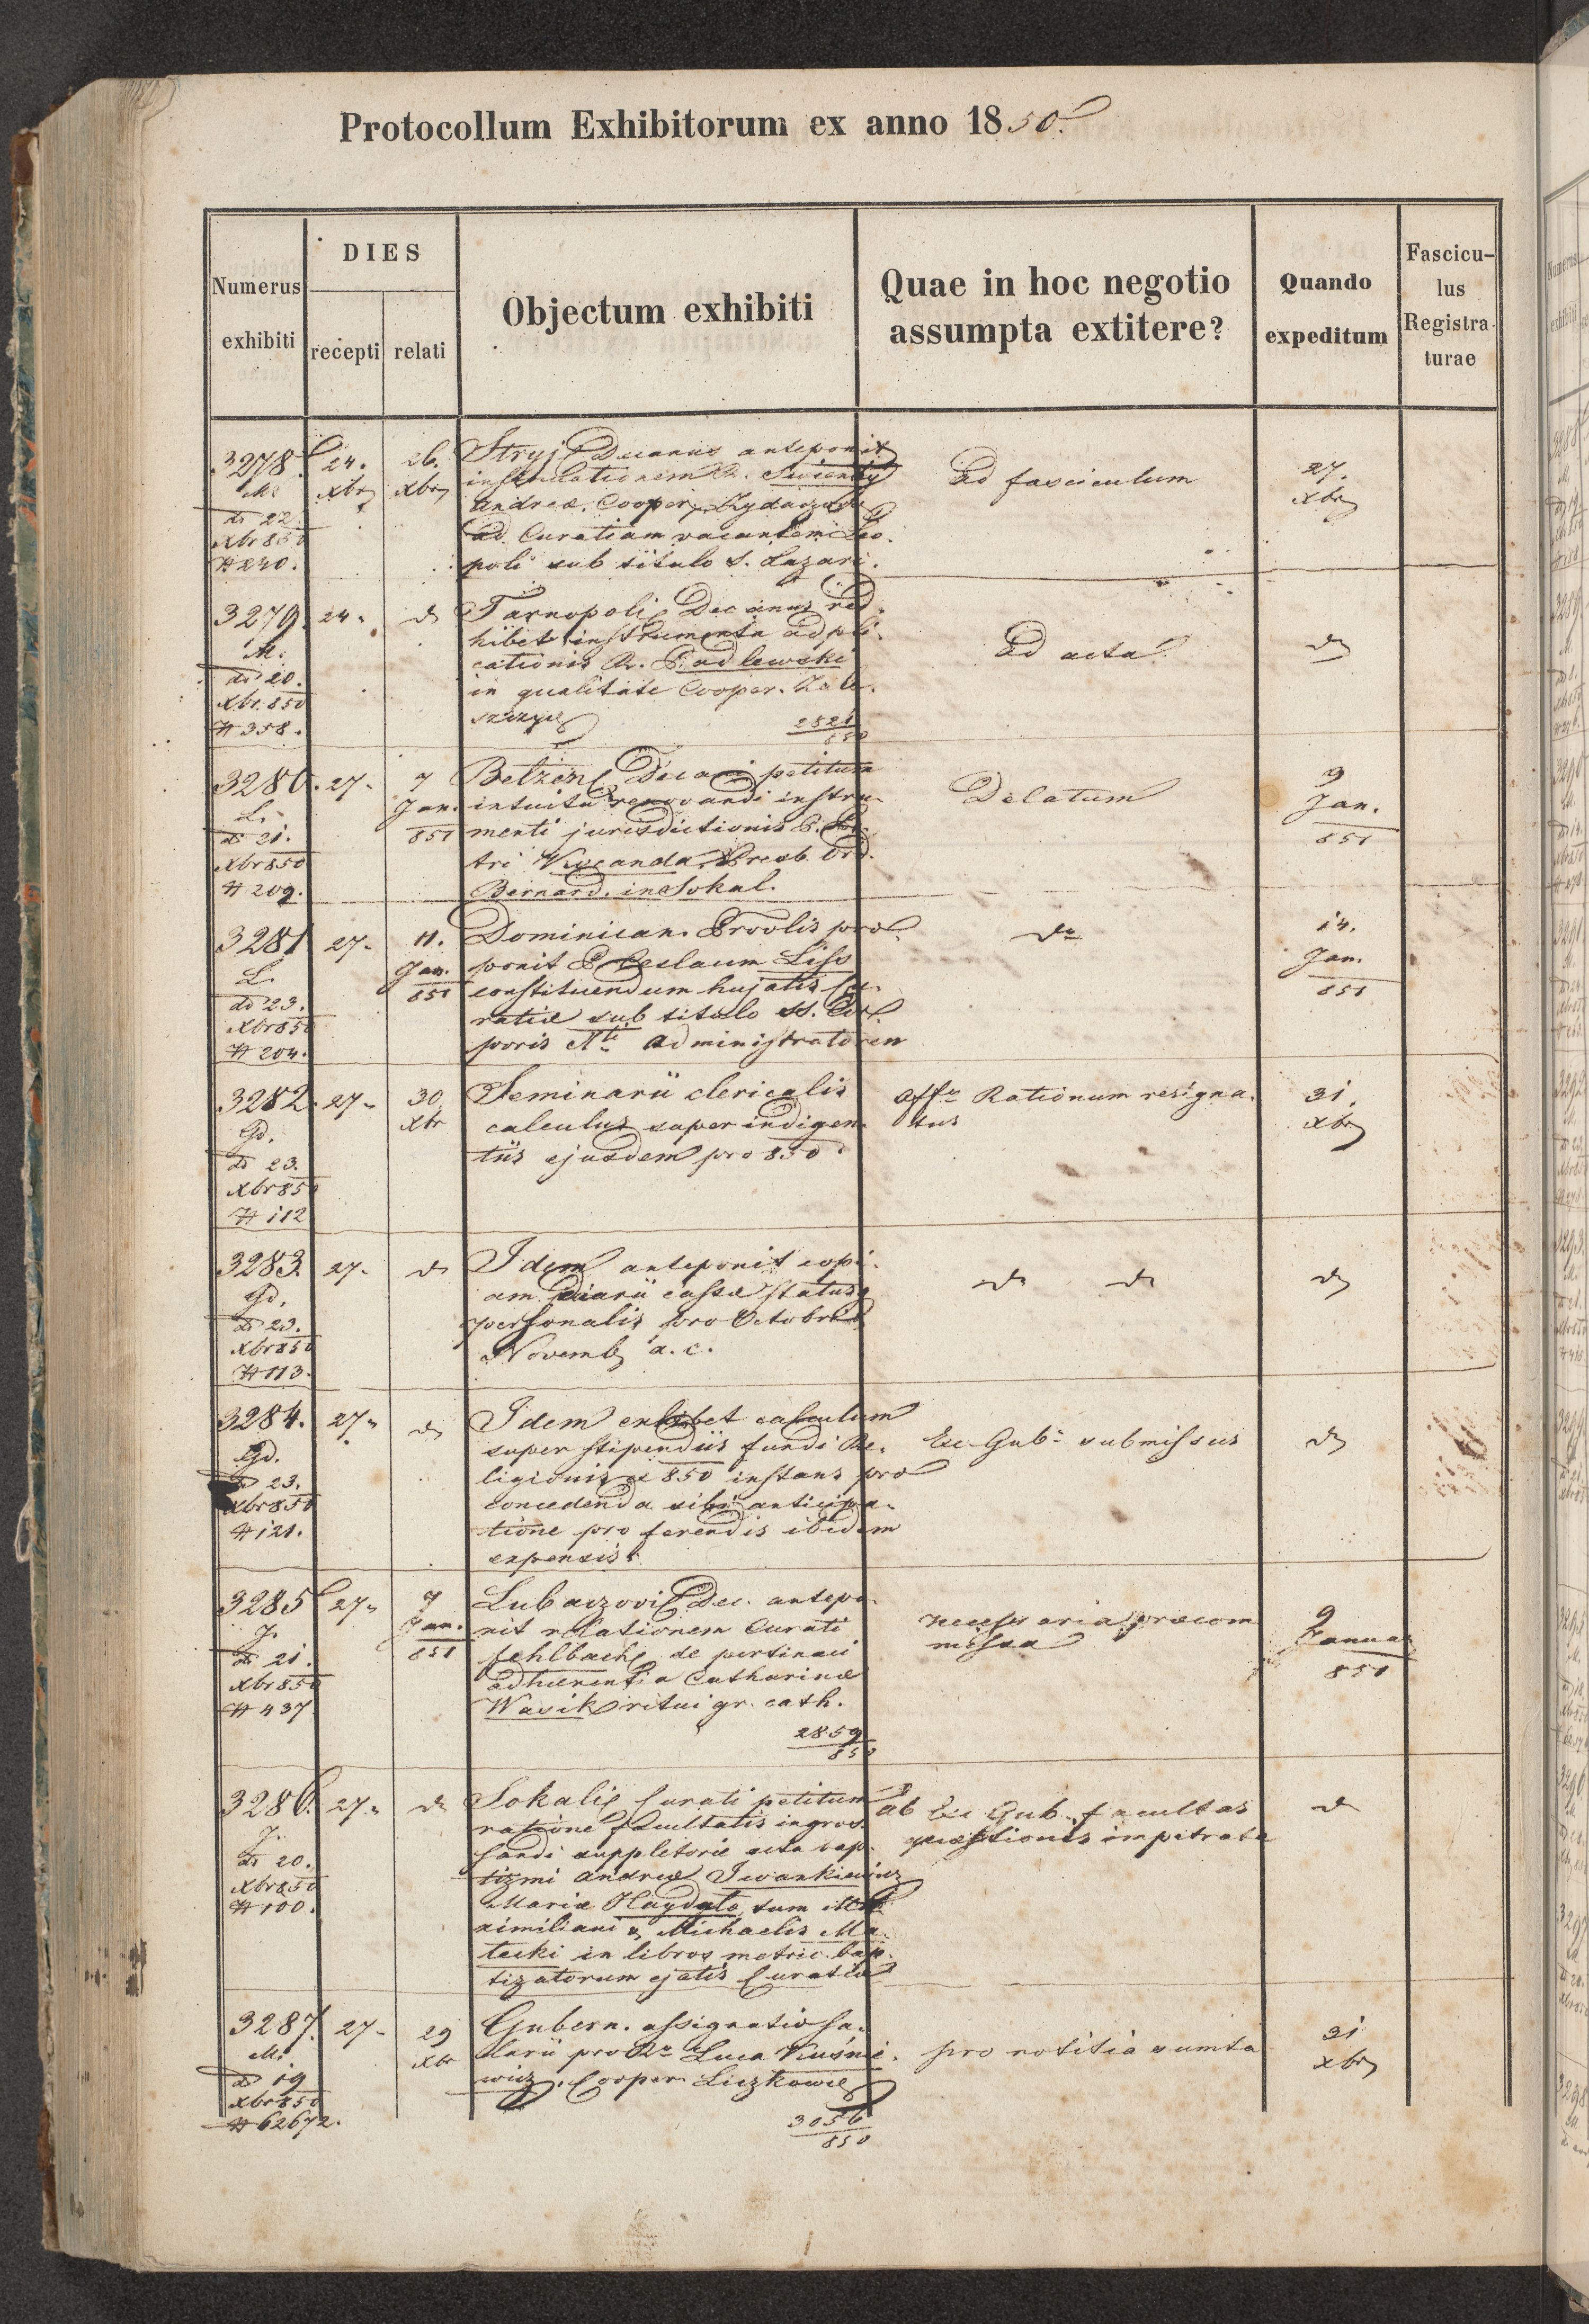 Protocollum Exhibitorum ex anno 1850.
Numerus exhibiti
DIES
recepti
relati
Objectum exhibiti
Quae in hoc negotio
assumpta extitere?
Quando
expeditum
Fascicu-
lus
Registra-
turae
3278
M.
dd 22.
Xbr 850
N 240.
24.
Xbr
26.
Xbr
Stryj Decanus anteponit
Andreæ, Cooper.
ad Curatiam vacantem Leo-
poli sub titulo S. Lazari.
Ad fasciculum
27.
Xbr
3279.
M.
dd 20.
Xbr. 850
N 358.
24.
do
Tarnopoli Decanus red-
hibet instrumenta adpli-
cationis R. Padlewski
in qualitate Cooper. Zale-
szczyc
2521
850
Ad acta
do
3280.
L.
dd 21.
Xbr 850
N 209.
27.
7
Jan.
851
Belzen Decani petitum
intuitu renovandi instru-
menti jurisdictionis P.
Presb. Ord.
Bernard. in Sokal.
Delatum
9
Jan.
851
3281
L.
dd 23.
Xbr 850
N 204.
27.
11.
Jan.
851
Dominican. Provlis pro-
ponit P. Ceslaum Liss
constituendum hujatis Cu-
ratiæ sub titulo SS. Cor-
poris Xti Administratorem
do
14.
Jan.
851
3282.
Gd.
dd 23.
Xbr 850
N 112
27.
30
Xbr
Seminarii clericalis
calculus super indigen-
tiis ejusdem pro 850
Offo Rationum resigna-
tus
31.
Xbr
3283.
Gd.
dd 23.
Xbr 850
N 113.
27.
do
Idem anteponit copi-
am Diarii cassæ status
personalis pro Octobri &
Novemb a. c.
do do
do
3284.
Gd.
dd 23.
Xbr 850
N 121.
27.
do
Idem exhibet calculum
super stipendiis fundi Re-
ligionis ex 850 instans pro
concedenda sibi anticipa-
tione pro ferendis ibidem
expensis.
Exc. Gubo submissus
do
3285
J.
dd 21.
Xbr 850
N 437
27.
7
Jan.
851
Lubaczovi Dec. antepo-
nit relationem Curati
Fehlbach de pertinaci
adhærentia Catharinæ
Wasik ritui gr. cath.
2859
850
necessaria præcom
missa
9
Januar
851
3286.
J.
dd 20.
Xbr 850
N 100.
27.
do
Sokali Curati petitum
ratione facultatis ingros-
sandi suppletorie acta bap-
tizmi Andreæ Iwankiewicz
Mariæ Haydato, tum Ma
ximiliani & Michaelis Ma-
tecki in libros metric. bap-
tizatorum ejatis Curatiæ
ab Exc. Gub. facultas
quæstionis impetrata
do
3287.
M.
dd 19
Xbr 850
N 62672.
27.
29
Xbr
Gubern. assignatio sa-
larii pro Ro Luca Kuśnie-
wicz, Cooper. Liczkowce
3056
850
pro notitia sumta
31
Xbr